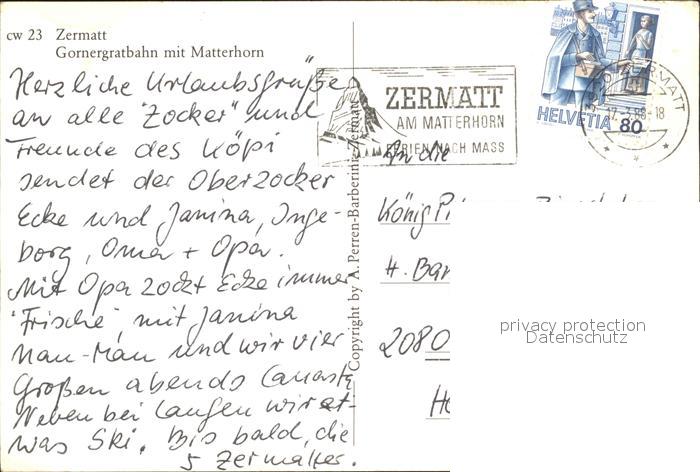 cw 23 Zermatt
Gornergratbahn mit Matterhorn
Herzliche Urlaubsgrüße
an alle "Zocker" und
Freunde des Köpi
sendet der Oberzocker
Ecke und Janina, Inge-
borg, Oma + Opa.
Mit Opa zockt Ecke immer
"Frische", mit Janina
Mau-Mau und wir vier
Großen abends Canasta
Neben bei laufen wir et-
was Ski. Bis bald, die
5 Zermatter.
Copyright by A. Perren-Barberini, Zermatt
ZERMATT
AM MATTERHORN
FERIEN NACH MASS
HELVETIA 80
ZERMATT
-18
An die
König
H. Bar
2080
privacy protection
Datenschutz